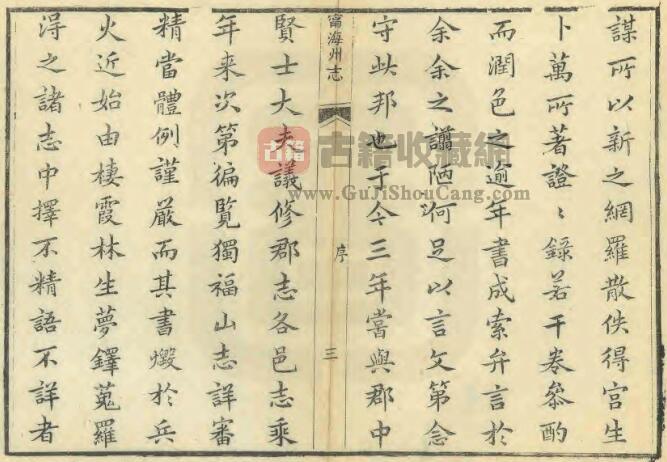 謀所以新之網羅散佚得宫生
卜萬所著證〻錄若干卷叅酌
而潤色之逾年書成索弁言於
余余之譾陋何足以言文第念
守此邦也于今三年嘗與郡中
寧海州志
序
三
賢士大夫議修郡志各邑志乘
年来次第徧覧獨福山志詳審
精當體例謹嚴而其書燬於兵
火近始由棲霞林生夢鐸蒐羅
淂之諸志中擇不精語不詳者
古籍
古籍收藏網
www.GuJiShouCang.com